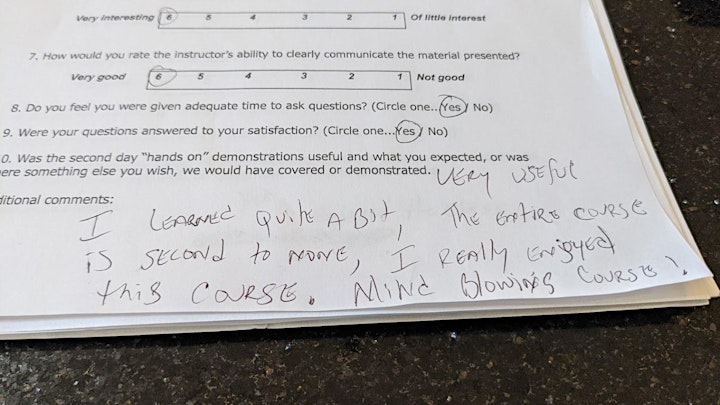 Very interesting 6 5 4 3 2 1 Of little interest
7. How would you rate the instructor's ability to clearly communicate the material presented?
Very good 6 5 4 3 2 1 Not good
8. Do you feel you were given adequate time to ask questions? (Circle one...Yes / No)
9. Were your questions answered to your satisfaction? (Circle one...Yes / No)
0. Was the second day "hands on" demonstrations useful and what you expected, or was
ere something else you wish, we would have covered or demonstrated. VERY USEFUL
ditional comments:
I LEARNED QUITE A BIT, THE ENTIRE COURSE
IS SECOND TO NONE, I REALLY ENJOYED
THIS COURSE. MIND BLOWING COURSE!